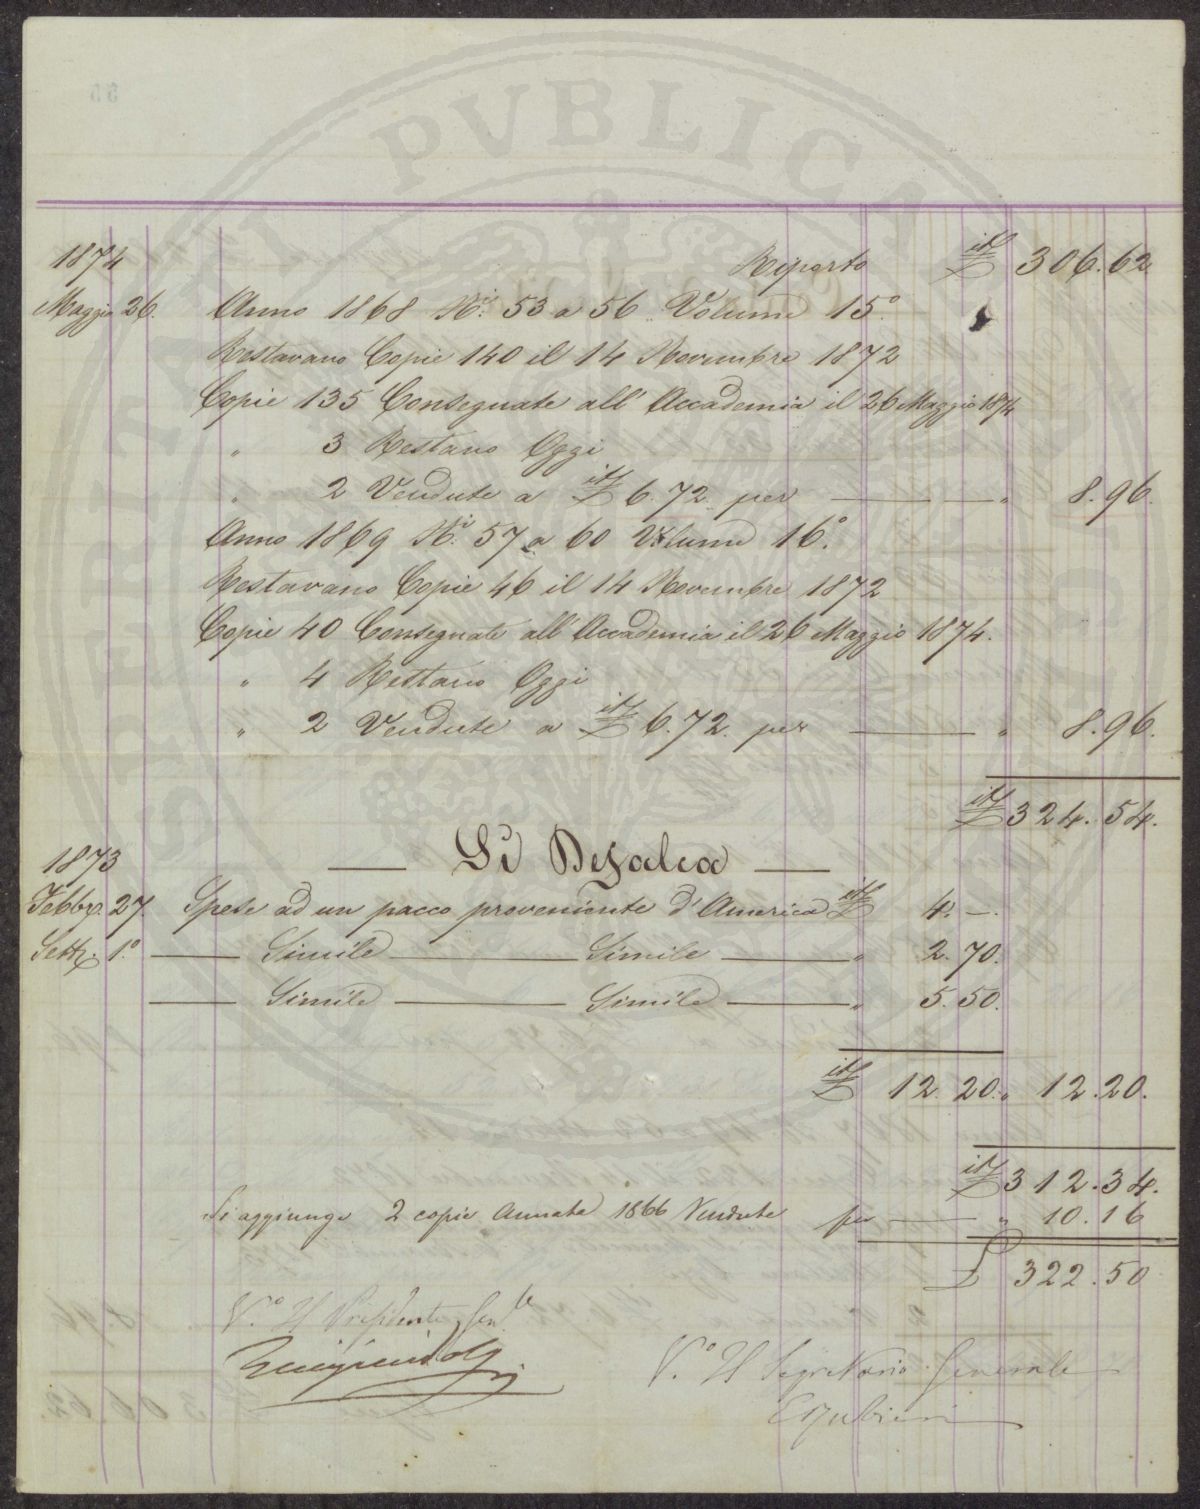 PVBLICA
1874 Riporto it£ 306.62
Maggio 26. Anno 1868 Ni. 53 a 56 Volume 15°.
Restavano Copie 140 il 14 Novembre 1872
Copie 135 Consegnate all' Accademia il 26 Maggio 1874
" 3 Restano Oggi
" 2 Vendute a it£ 6.72. per " 8.96.
Anno 1869 Ni. 57 a 60 Volume 16°.
Restavano Copie 46 il 14 Novembre 1872
Copie 40 Consegnate all' Accademia il 26 Maggio 1874.
" 4 Restano Oggi
" 2 Vendute a it£ 6.72. per " 8.96.
it£ 324.54.
Si Defalca
1873
Febb. 27. Spese ad un pacco proveniente d'America it£ 4.-.
Sett. 1° Simile Simile " 2.70.
Simile Simile " 5.50.
it£ 12.20. " 12.20.
it£ 312.34.
Si aggiunge 2 copie annata 1866 Vendute per " 10.16
£ 322.50
V° Il Presidente Gen.le
V.° Il Segretario Generale